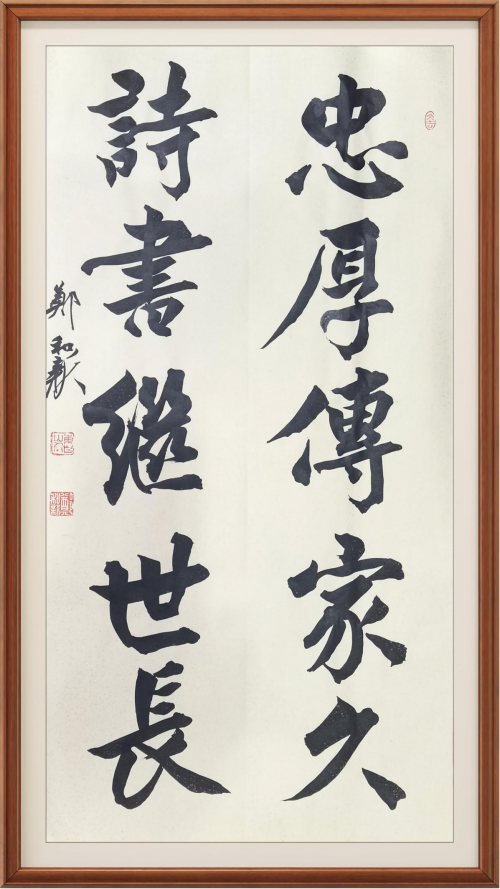 忠厚傳家久
詩書继世長
鄭和歡